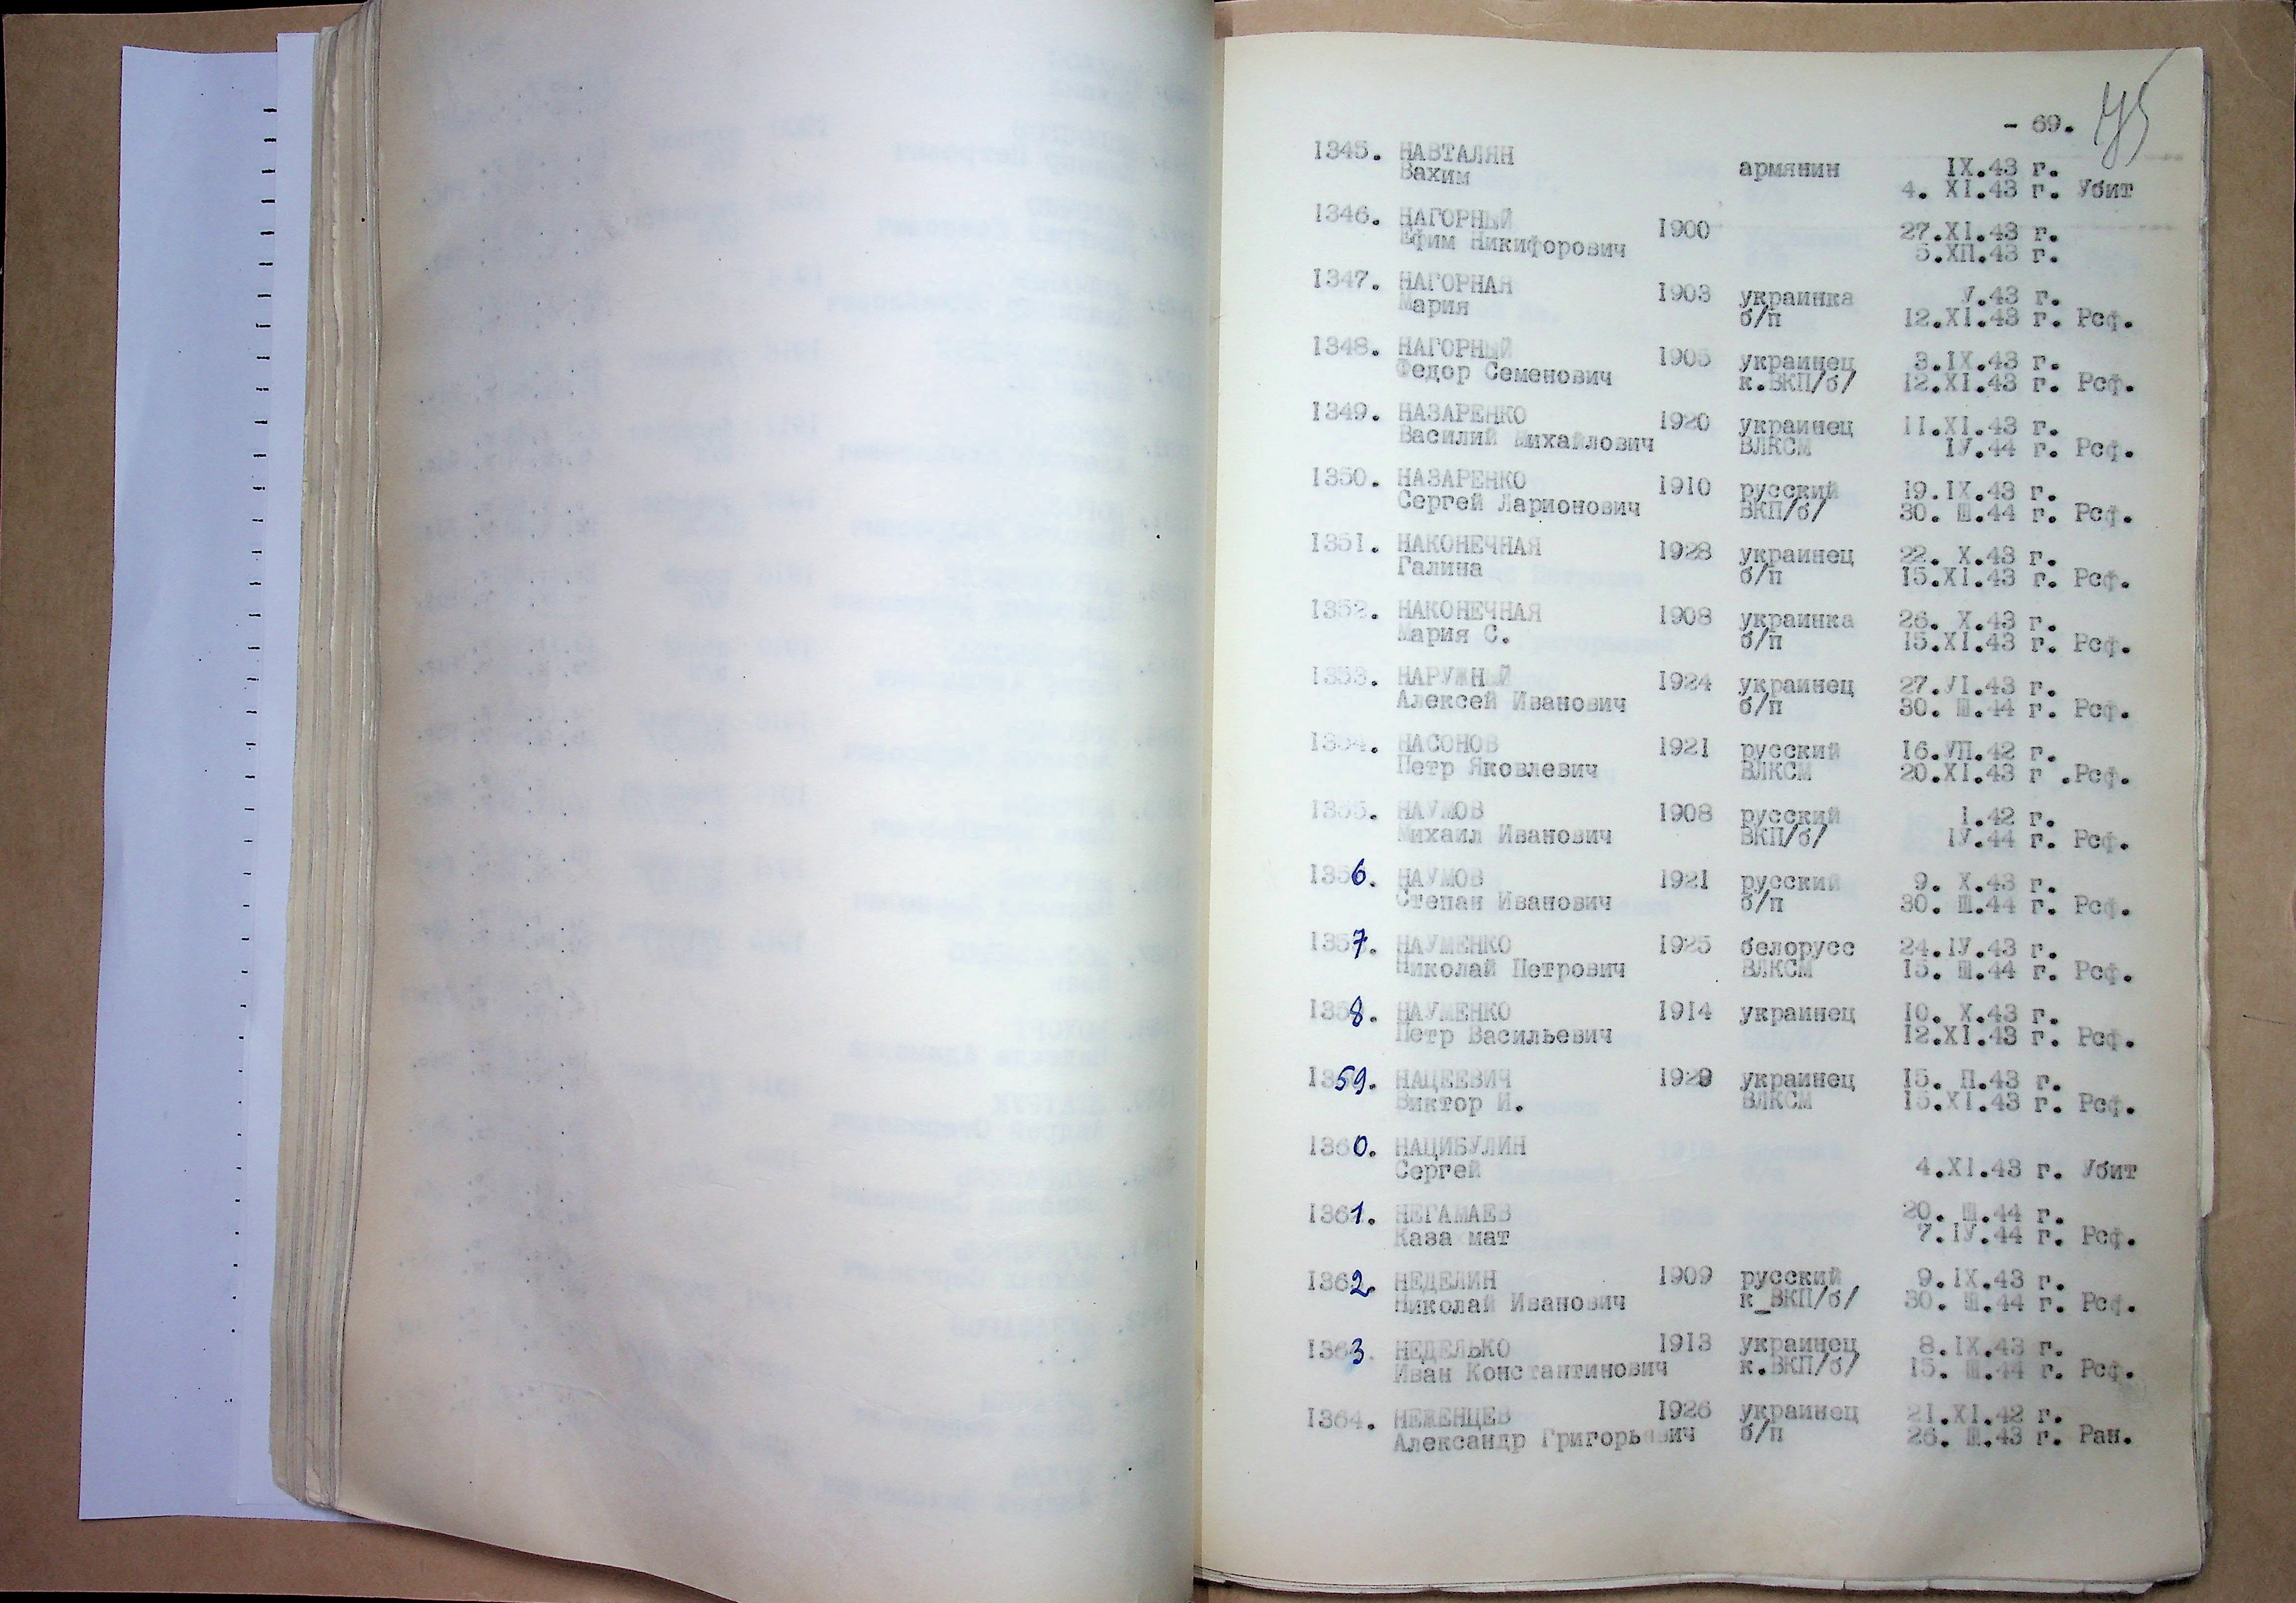 - 69.
75
1345. НАВТАЛЯН
Вахим армянин IX.43 г.
4. XI.43 г. Убит
1346. НАГОРНЫЙ 1900 27.XI.43 г.
Ефим Никифорович 5.ХП.43 г.
1347. НАГОРНАЯ 1903 украинка У.43 г.
Мария б/п 12.XI.43 г. Рсф.
1348. НАГОРНЫЙ 1905 украинец 3.IX.43 г.
Федор Семенович к.ВКП/б/ 12.XI.43 г. Рсф.
1349. НАЗАРЕНКО 1920 украинец 11.XI.43 г.
Василий Михайлович ВЛКСМ IУ.44 г. Рсф.
1350. НАЗАРЕНКО 1910 русский 19.IX.43 г.
Сергей Ларионович ВКП/б/ 30. Ш.44 г. Рсф.
1351. НАКОНЕЧНАЯ 1928 украинец 22. X.43 г.
Галина б/п 15.XI.43 г. Рсф.
1352. НАКОНЕЧНАЯ 1908 украинка 26. X.43 г.
Мария С. б/п 15.XI.43 г. Рсф.
1353. НАРУЖНЫЙ 1924 украинец 27.УI.43 г.
Алексей Иванович б/п 30. Ш.44 г. Рсф.
1354. НАСОНОВ 1921 русский 16.УП.42 г.
Петр Яковлевич ВЛКСМ 20.XI.43 г .Рсф.
1355. НАУМОВ 1908 русский 1.42 г.
Михаил Иванович ВКП/б/ IУ.44 г. Рсф.
1356. НАУМОВ 1921 русский 9. X.43 г.
Степан Иванович б/п 30. Ш.44 г. Рсф.
1357. НАУМЕНКО 1925 белорусс 24.IУ.43 г.
Николай Петрович ВЛКСМ 15. Ш.44 г. Рсф.
1358. НАУМЕНКО 1914 украинец 10. X.43 г.
Петр Васильевич 12.XI.43 г. Рсф.
1359. НАЦЕЕВИЧ 1929 украинец 15. П.43 г.
Виктор И. ВЛКСМ 15.XI.43 г. Рсф.
1360. НАЦИБУЛИН
Сергей 4.XI.43 г. Убит
1361. НЕГАМАЕВ 20. Ш.44 г.
Каза мат 7.IУ.44 г. Рсф.
1362. НЕДЕЛИН 1909 русский 9.IX.43 г.
Николай Иванович к_ВКП/б/ 30. Ш.44 г. Рсф.
1363. НЕДЕЛЬКО 1913 украинец 8.IX.43 г.
Иван Константинович к.ВКП/б/ 15. Ш.44 г. Рсф.
1364. НЕЖЕНЦЕВ 1926 украинец 21.XI.42 г.
Александр Григорьевич б/п 26. Ш.43 г. Ран.